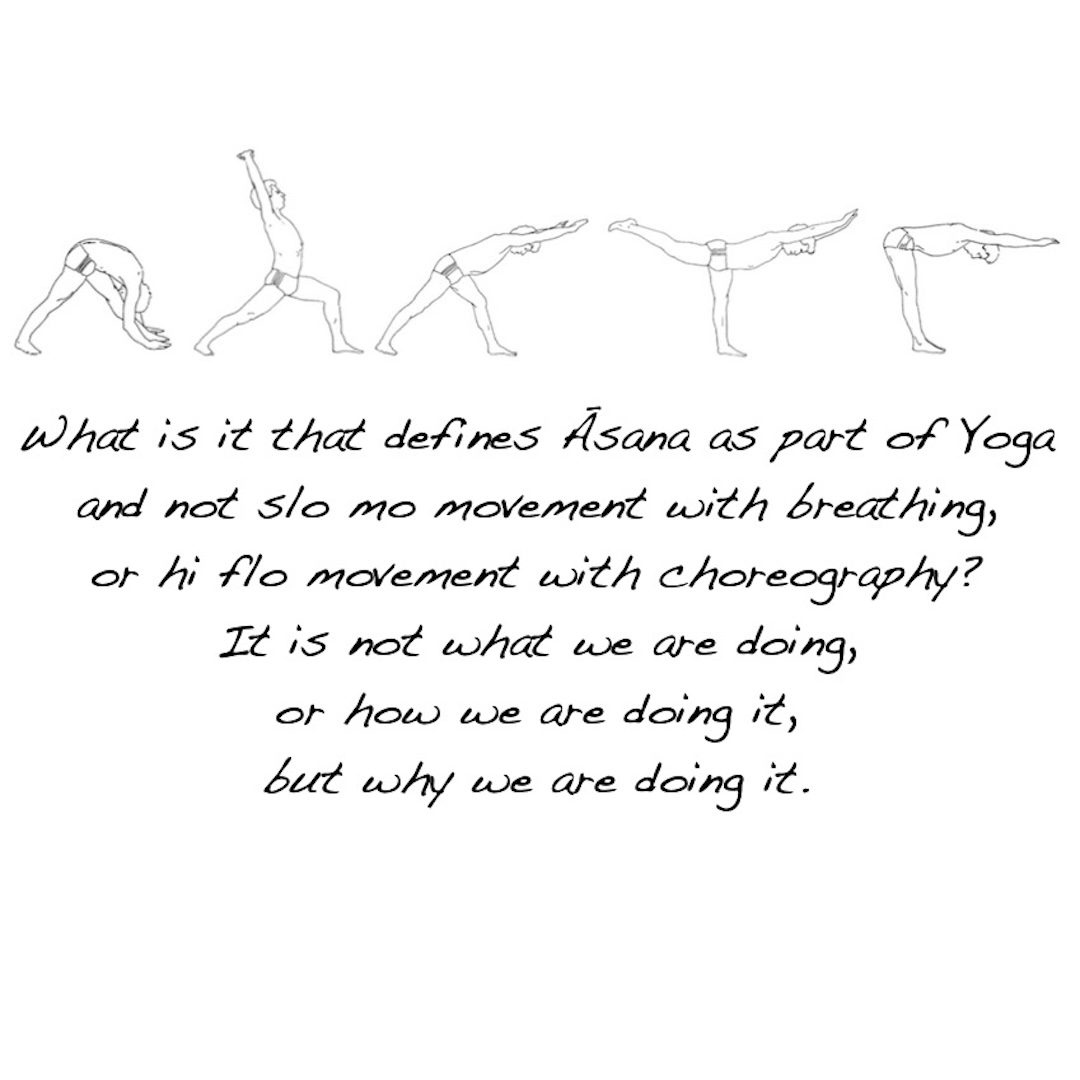 What is it that defines Āsana as part of Yoga
and not slo mo movement with breathing,
or hi flo movement with choreography?
It is not what we are doing,
or how we are doing it,
but why we are doing it.